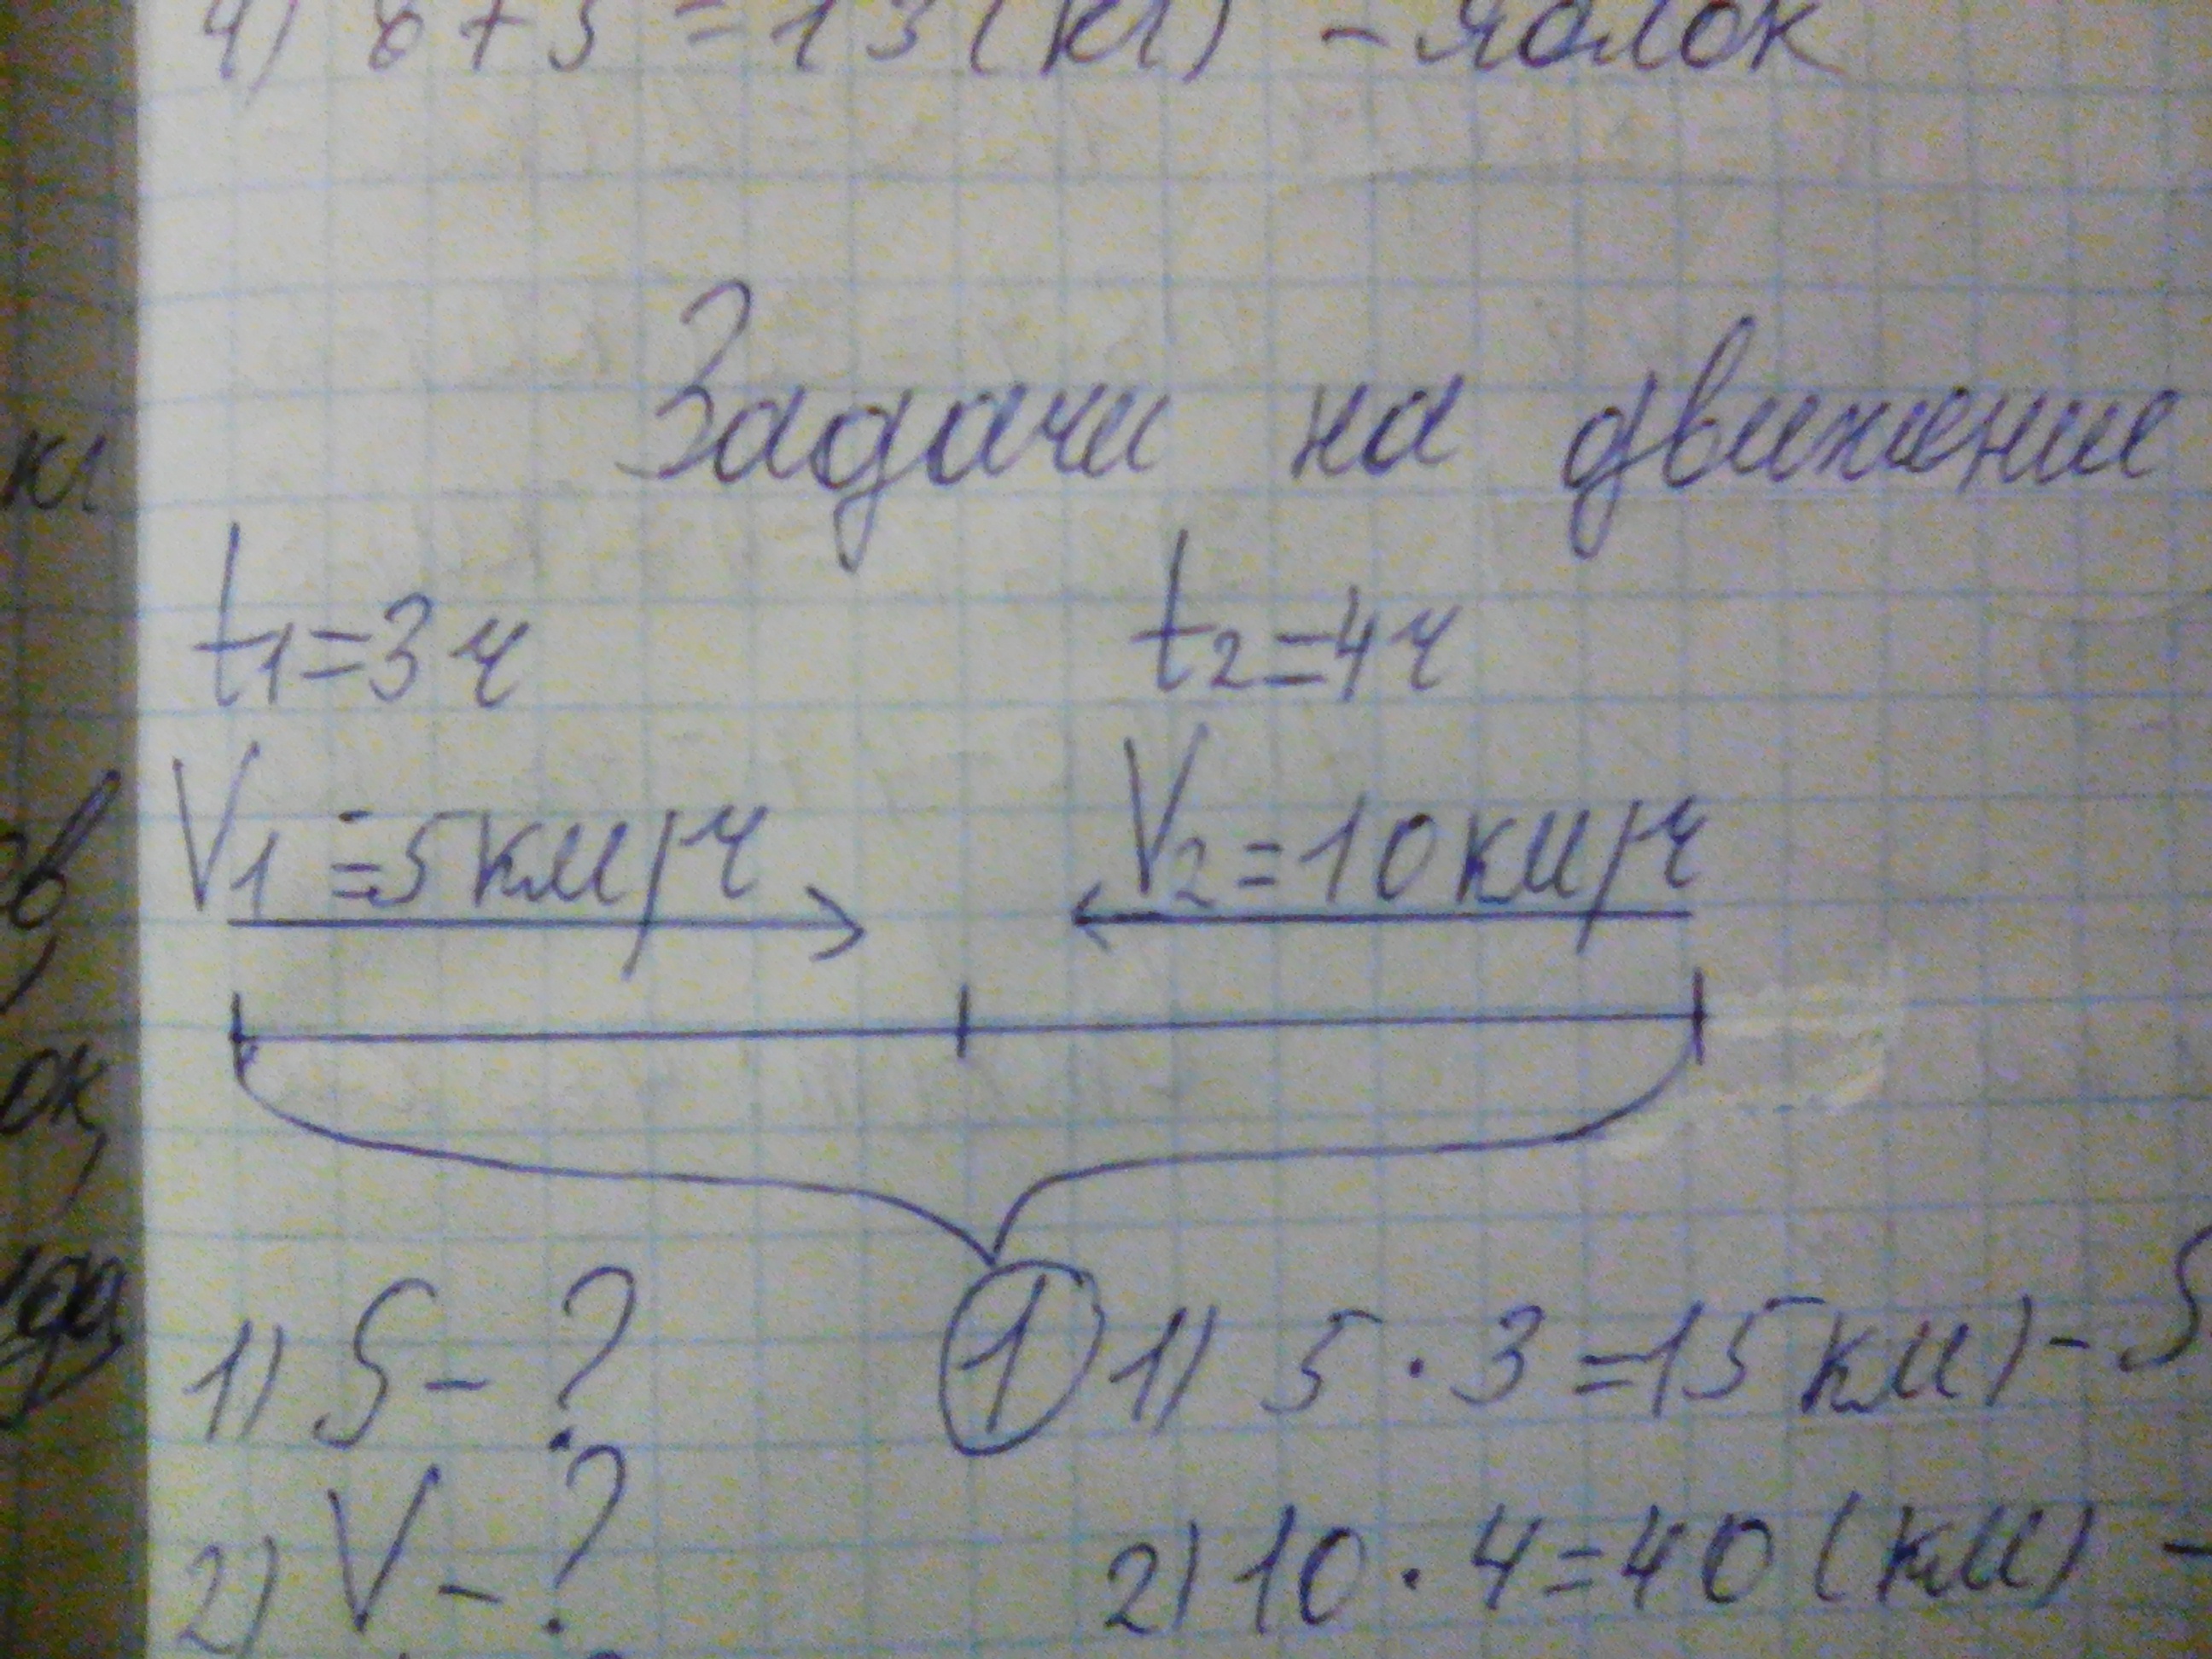 4) 8 + 5 = 13 (кг) - яблок
Задачи на движение
t1=3ч t2=4ч
V1=5км/ч V2=10км/ч
1) S - ? 1 1) 5 · 3 =15км) - S
2) V - ? 2) 10 · 4=40 (км) -
кг